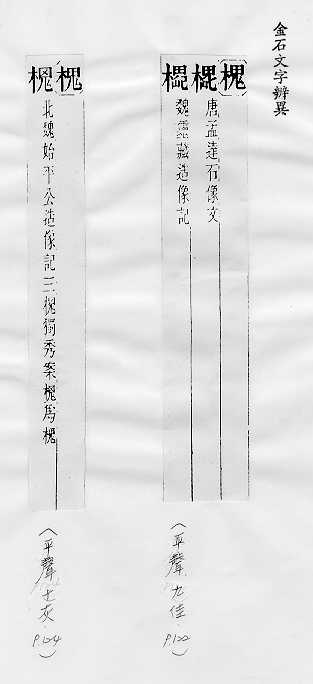 金石文字辨異
槐
唐孟達石像文
魏
造像記
槐
北魏始平公造像記三槐獨秀案
為槐
（平聲九佳 P122）
（平聲十灰 P124）